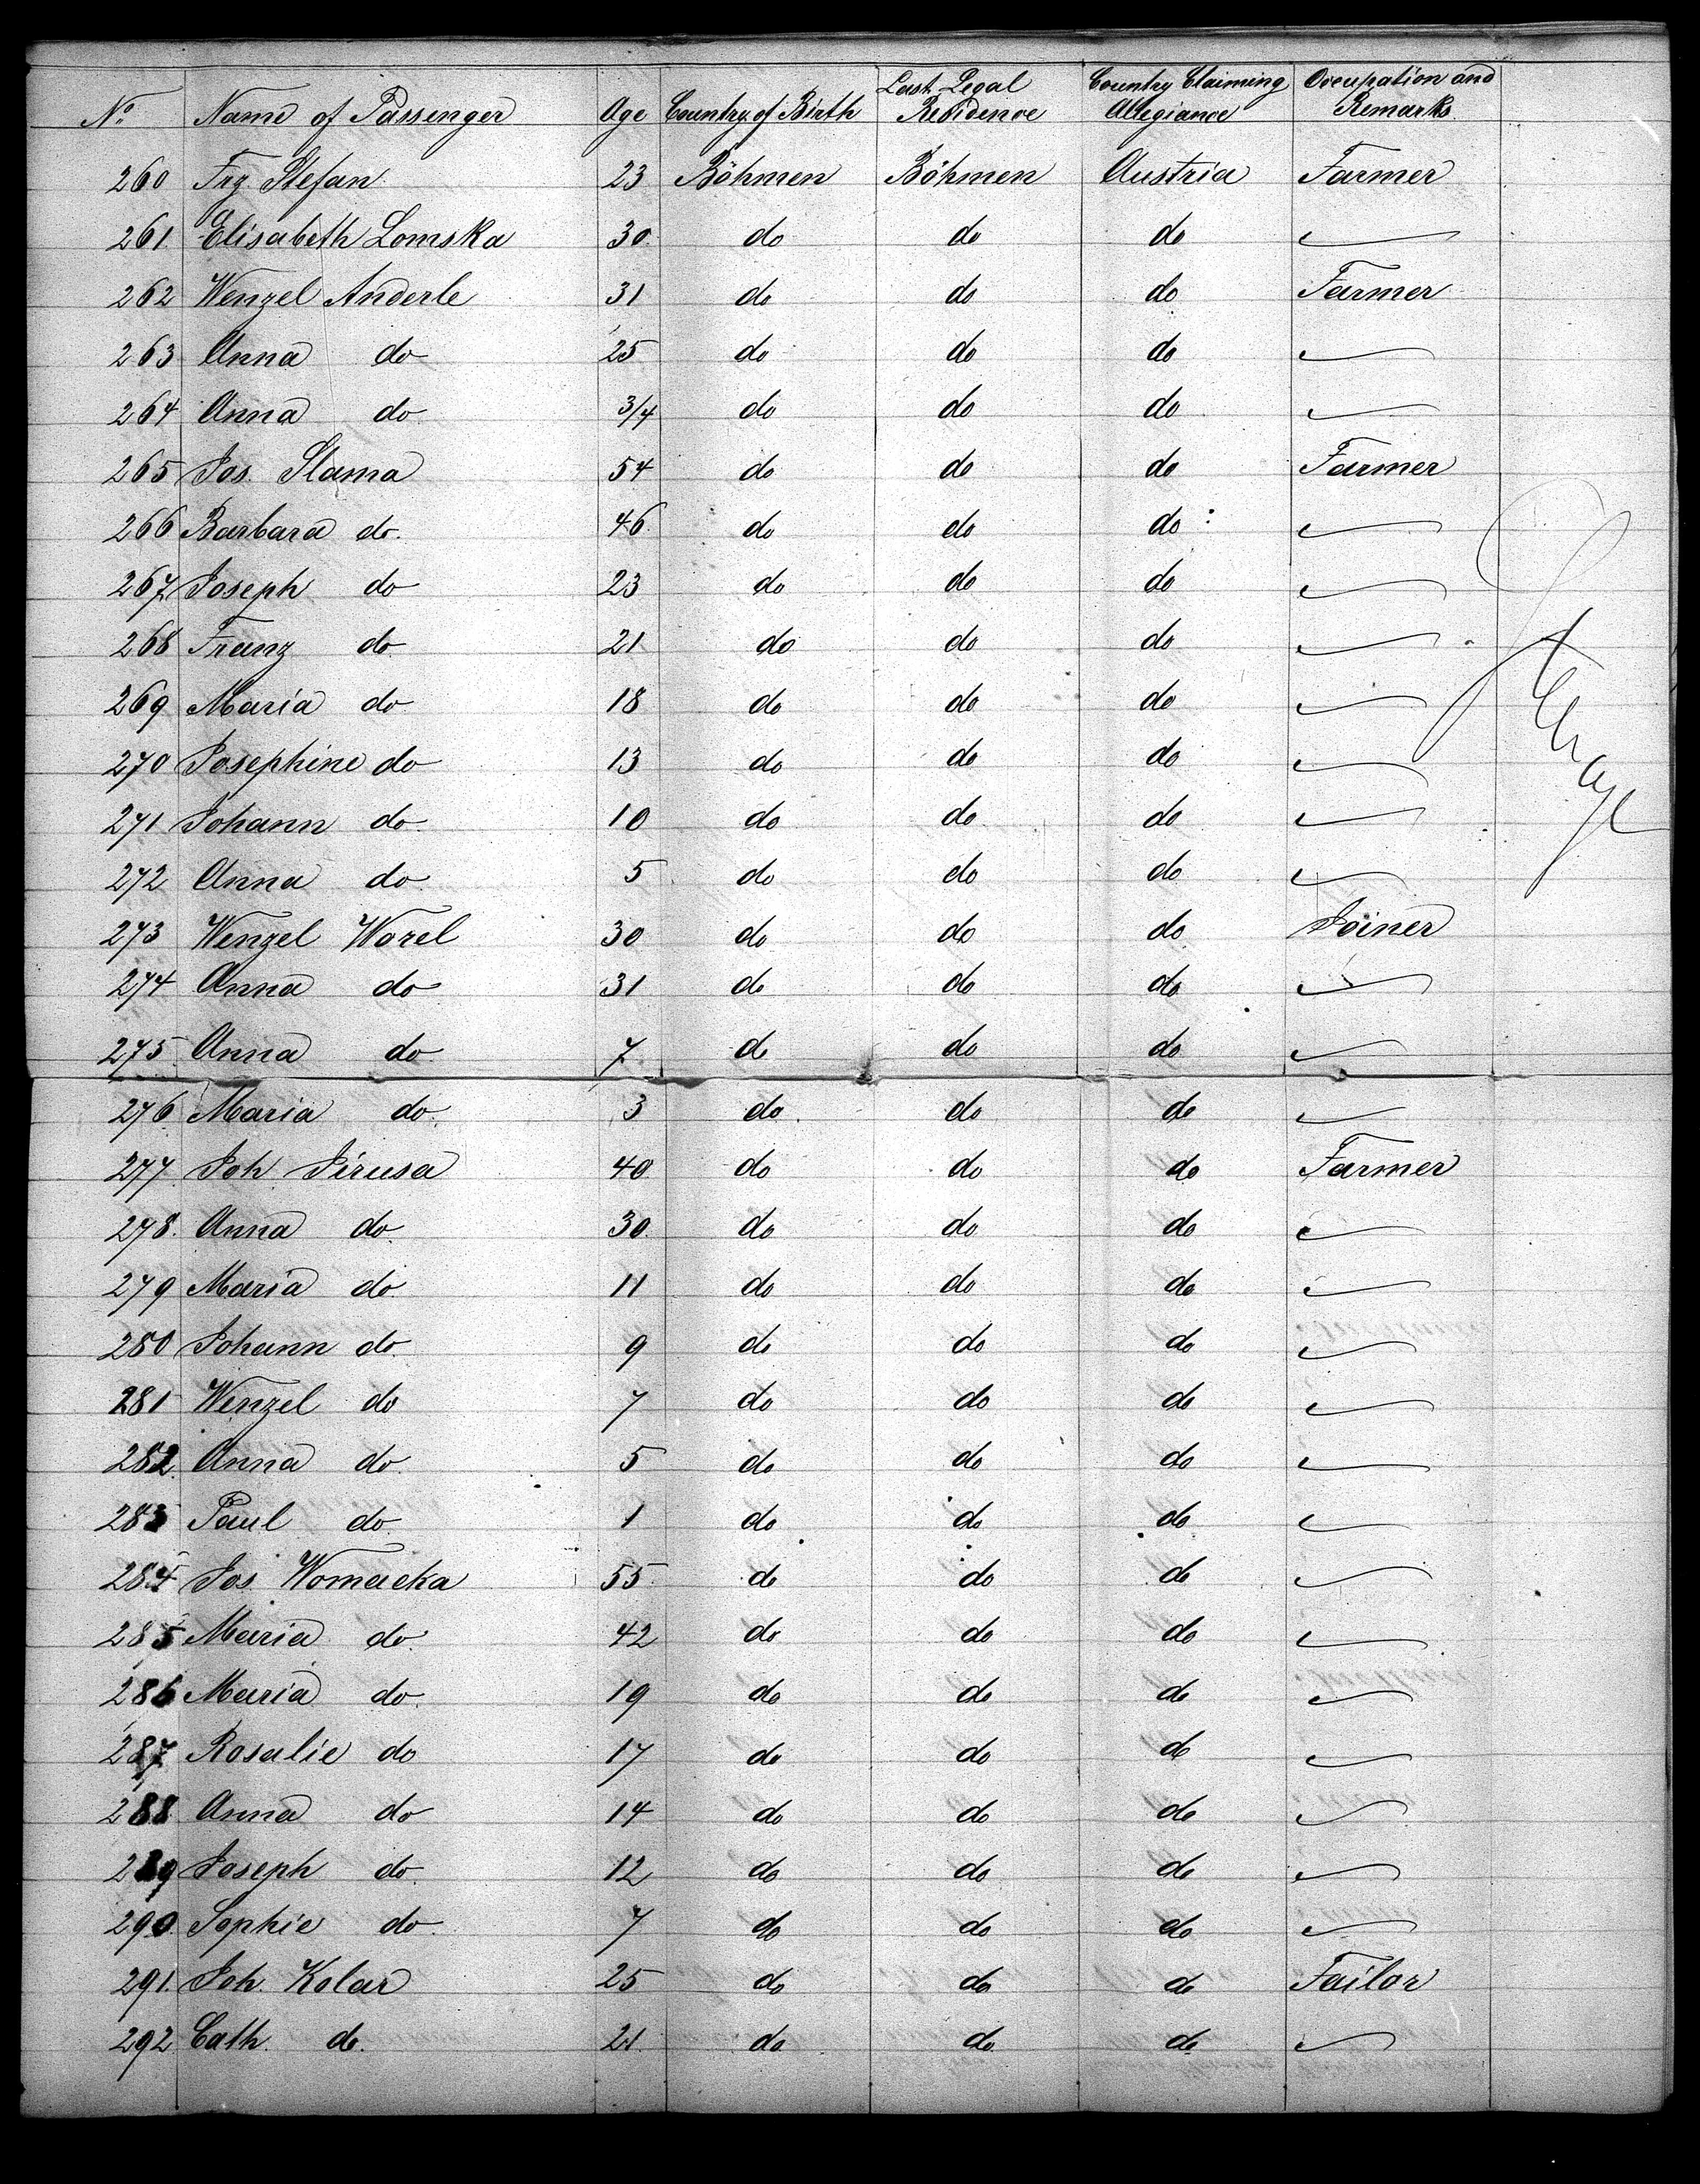 No. Name of Passenger Age Country of Birth Last Legal Residence Country Claiming Allegiance Occupation and Remarks
260 Frz. Stefan 23 Böhmen Böhmen Austria Farmer
261 Elisabeth Lomska 30 do do do —
262 Wenzel Anderle 31 do do do Farmer
263 Anna do 25 do do do —
264 Anna do 3/4 do do do —
265 Jos. Slama 54 do do do Farmer
266 Barbara do. 46 do do do —
267 Joseph do 23 do do do —
268 Franz do 21 do do do —
269 Maria do 18 do do do —
270 Josephine do 13 do do do —
271 Johann do 10 do do do —
272 Anna do 5 do do do —
273 Wenzel Worel 30 do do do Joiner
274 Anna do 31 do do do —
275 Anna do 7 do do do —
276 Maria do. 3 do do do —
277 Joh Jirusa 40 do do do Farmer
278. Anna do. 30. do do do —
279 Maria do. 11 do do do —
280 Johann do. 9 do do do —
281 Wenzel do 7 do do do —
282. Anna do. 5 do do do —
283 Paul do. 1 do do do —
284 Jos. Womacka 55 do do do —
285 Maria do. 42 do do do —
286 Maria do. 19 do do do —
287 Rosalie do 17 do do do —
288 Anna do 14 do do do —
289 Joseph do. 12 do do do —
290. Sophie do. 7 do do do —
291. Joh. Kolar 25 do do do Tailor
292 Cath. do. 21. do do do —